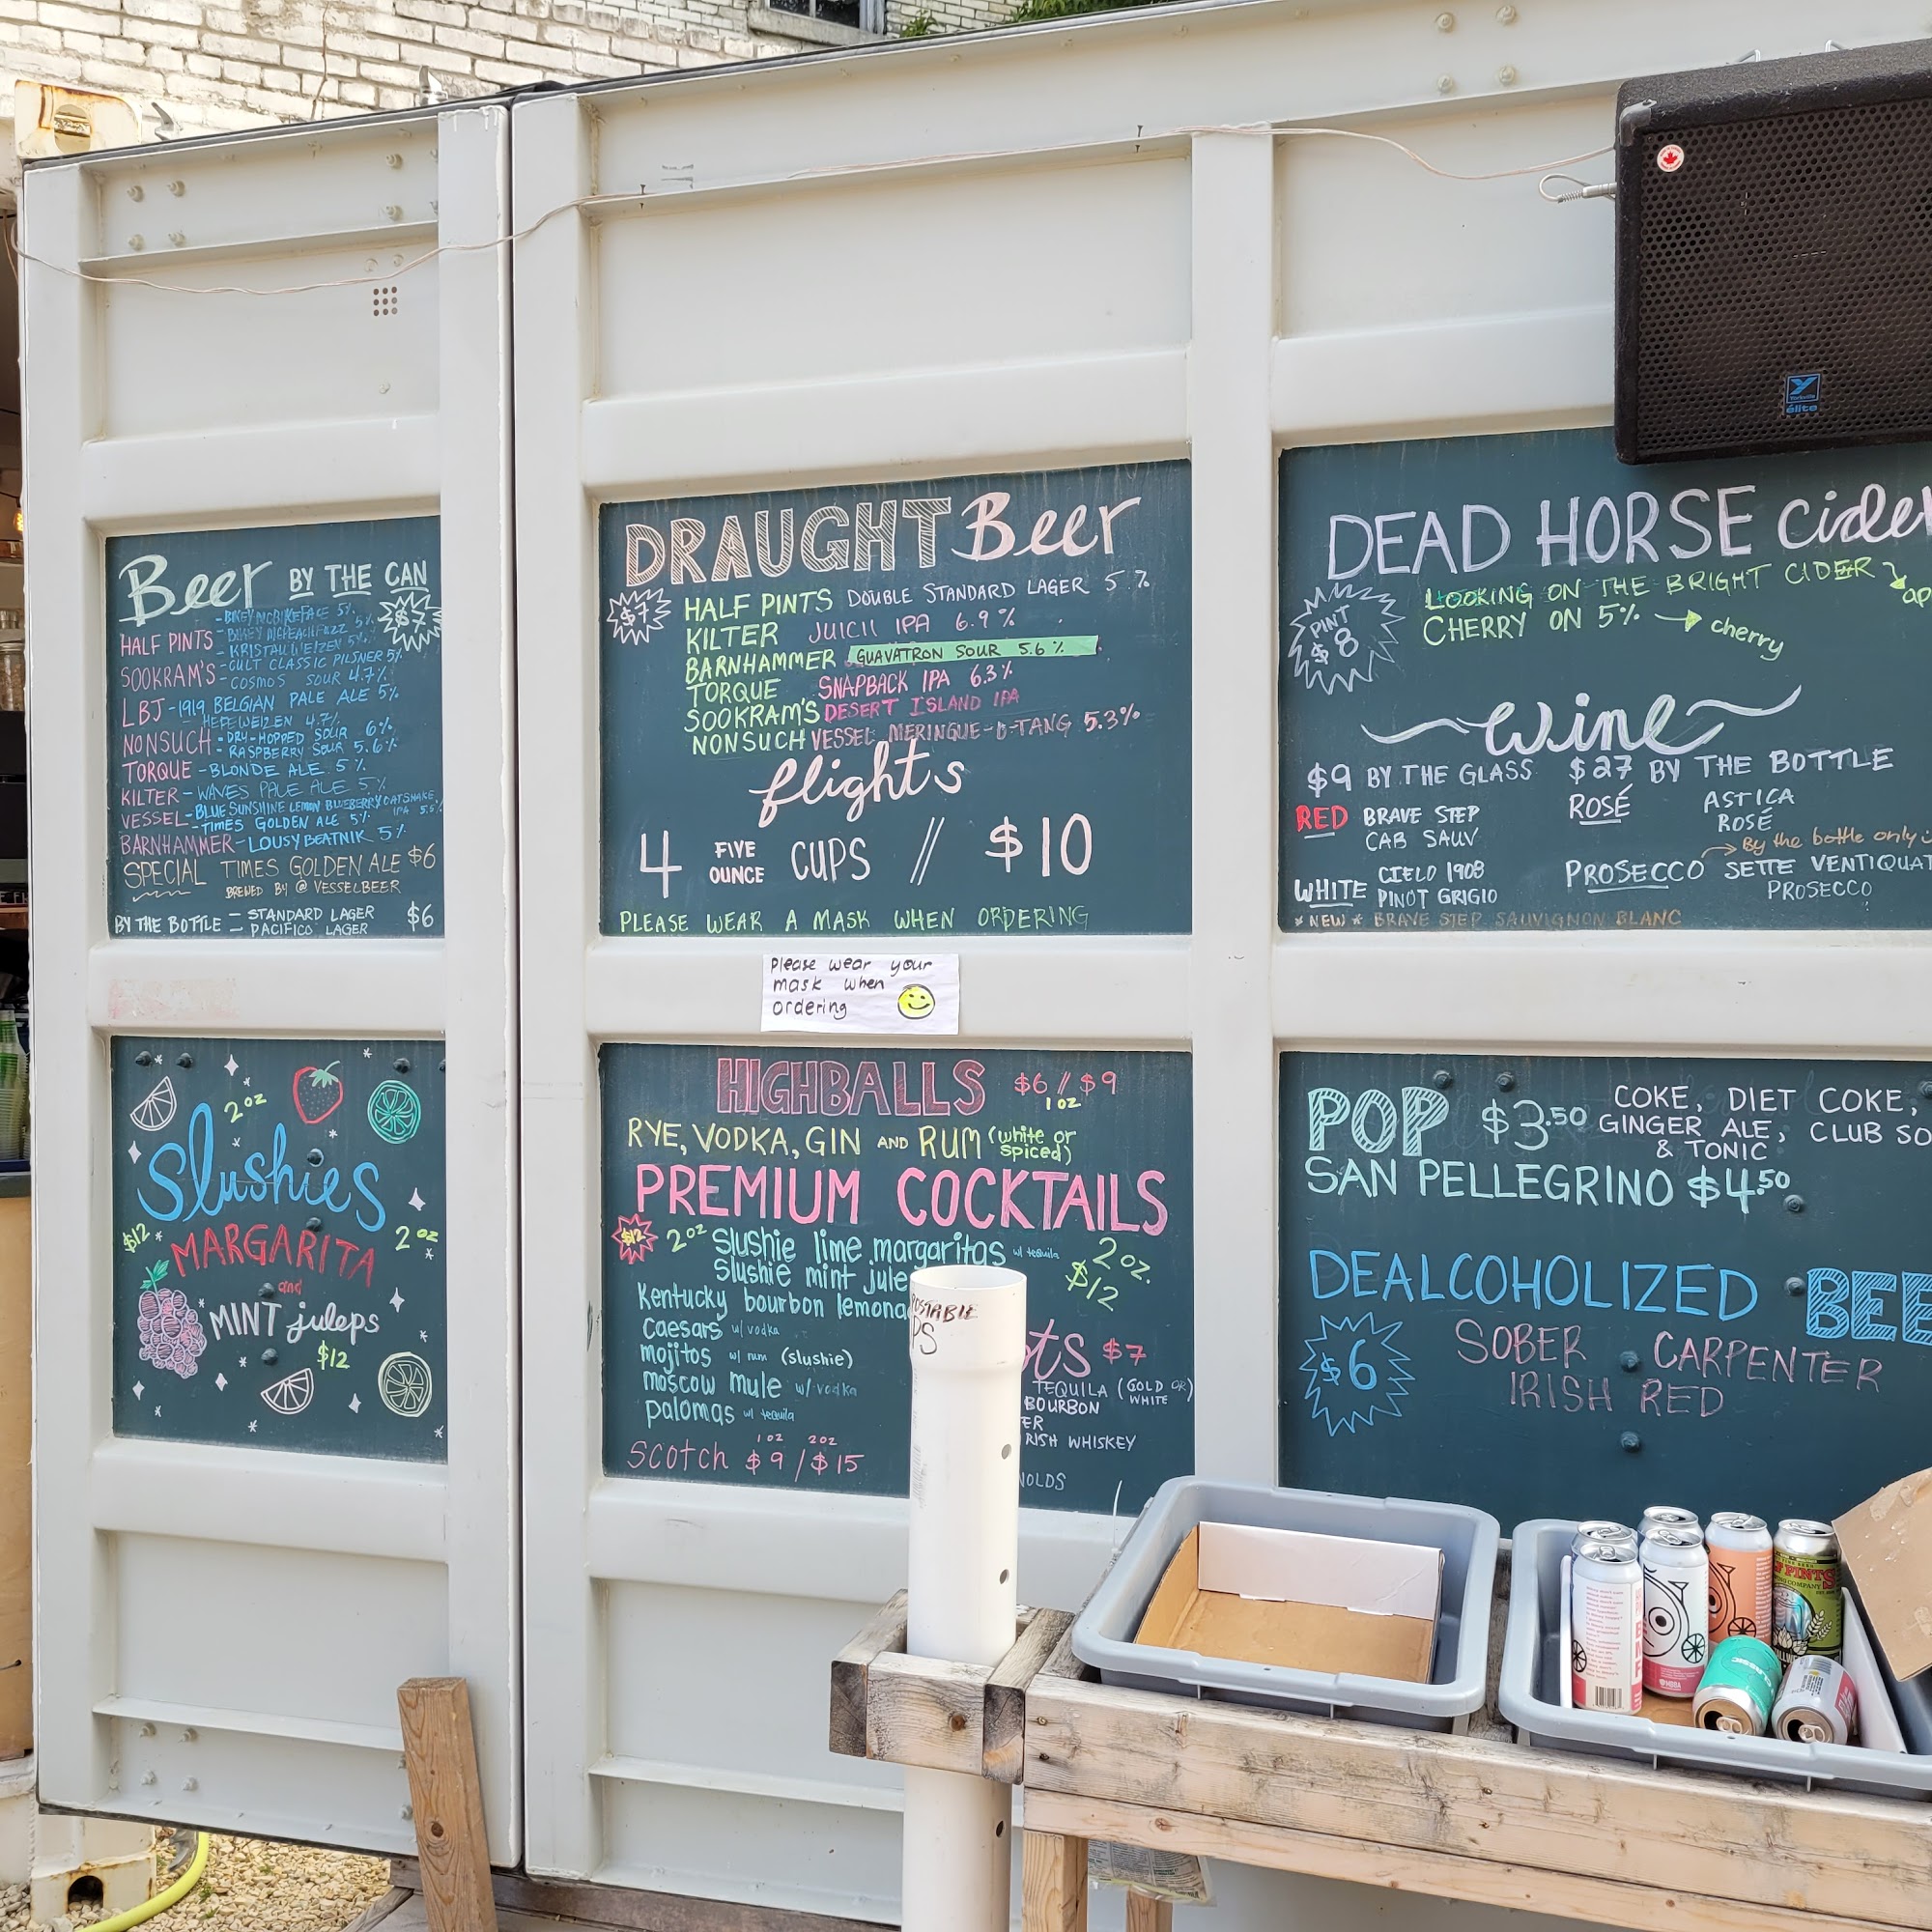 Beer BY THE CAN
$7
- BIKEY MCBIKEFACE 5%
HALF PINTS - BIKEY MCPEACHFUZZ 5%
- KRISTALLWEIZEN 5%
SOOKRAM'S - CULT CLASSIC PILSNER 5%
- COSMOS SOUR 4.7%
LBJ - 1919 BELGIAN PALE ALE 5%
- HEFEWEIZEN 4.7%
NONSUCH - DRY-HOPPED SOUR 6%
- RASPBERRY SOUR 5.6%
TORQUE - BLONDE ALE 5%
KILTER - WAVES PALE ALE 5%
VESSEL - BLUE SUNSHINE LEMON BLUEBERRY OATSHAKE IPA 5.5%
- TIMES GOLDEN ALE 5%
BARNHAMMER - LOUSY BEATNIK 5%
SPECIAL TIMES GOLDEN ALE $6
BREWED BY @VESSELBEER
BY THE BOTTLE - STANDARD LAGER $6
PACIFICO LAGER
DRAUGHT Beer
$7
HALF PINTS DOUBLE STANDARD LAGER 5%
KILTER JUICII IPA 6.9%
BARNHAMMER GUAVATRON SOUR 5.6%
TORQUE SNAPBACK IPA 6.3%
SOOKRAM'S DESERT ISLAND IPA
NONSUCH VESSEL MERINGUE-D-TANG 5.3%
flights
4 FIVE OUNCE CUPS // $10
PLEASE WEAR A MASK WHEN ORDERING
DEAD HORSE cider
PINT $8
LOOKING ON THE BRIGHT CIDER
ap
CHERRY ON 5% → cherry
wine
$9 BY THE GLASS $27 BY THE BOTTLE
RED BRAVE STEP
CAB SAUV
ROSÉ ASTICA
ROSÉ
By the bottle only
WHITE CIELO 1908
PINOT GRIGIO
PROSECCO SETTE VENTIQUAT
PROSECCO
* NEW * BRAVE STEP SAUVIGNON BLANC
Please wear your
mask when
ordering
2 oz
Slushies
$12 MARGARITA 2 oz
and
MINT juleps
$12
HIGHBALLS $6 // $9
1 oz
RYE, VODKA, GIN AND RUM (white or spiced)
PREMIUM COCKTAILS
$12 2 oz Slushie lime margaritas w/ tequila 2 oz.
Slushie mint jule $12
Kentucky bourbon lemona
caesars w/ vodka
mojitos w/ rum (slushie)
moscow mule w/ vodka
palomas w/ tequila
1 oz 2 oz
Scotch $9 / $15
ots $7
TEQUILA (GOLD OR WHITE)
BOURBON
ER
RISH WHISKEY
NOLDS
POP $3.50 COKE, DIET COKE,
GINGER ALE, CLUB SO
& TONIC
SAN PELLEGRINO $4.50
DEALCOHOLIZED BEE
$6
SOBER CARPENTER
IRISH RED
Yorkville
élite